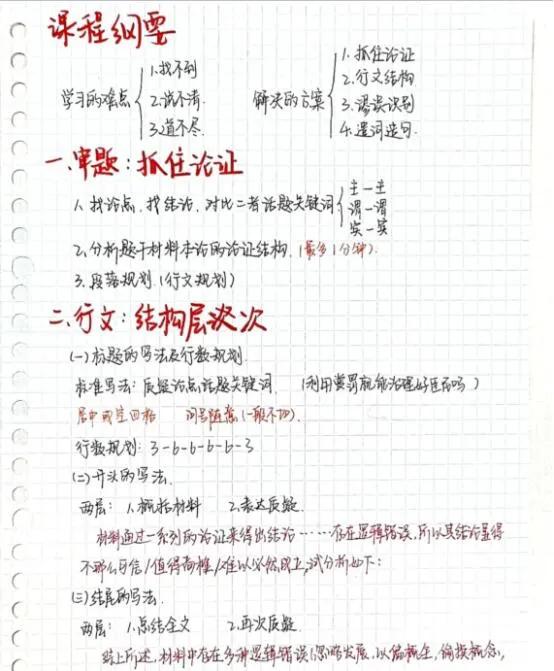 课程纲要
学习的难点 1.找不到 2.说不清 3.道不尽
解决的方案 1.抓住论证 2.行文结构 3.谬误识别 4.遣词造句
一.审题:抓住论证
1.找论点、找结论,对比二者话题关键词 主—主 谓—谓 宾—宾
2.分析题干材料本论的论证结构.(最多1分钟).
3.段落规划.(行文规划)
二.行文:结构层次
(一)标题的写法及行数规划
标准写法:质疑论点话题关键词. (利用赏罚就能治理好臣吗)
居中或空四格 问号随意(一般不加).
行数规划:3-6-6-6-6-3
(二)开头的写法.
两层:1.概括材料 2.表达质疑.
材料通过一系列的论证来得出结论……存在逻辑错误,所以其结论显得
不那么可信/值得商榷/难以必然成立,试分析如下:
(三)结尾的写法.
两层:1.总结全文 2.再次质疑.
综上所述,材料中存在多种逻辑错误(忽略发展、以偏概全,偷换概念,